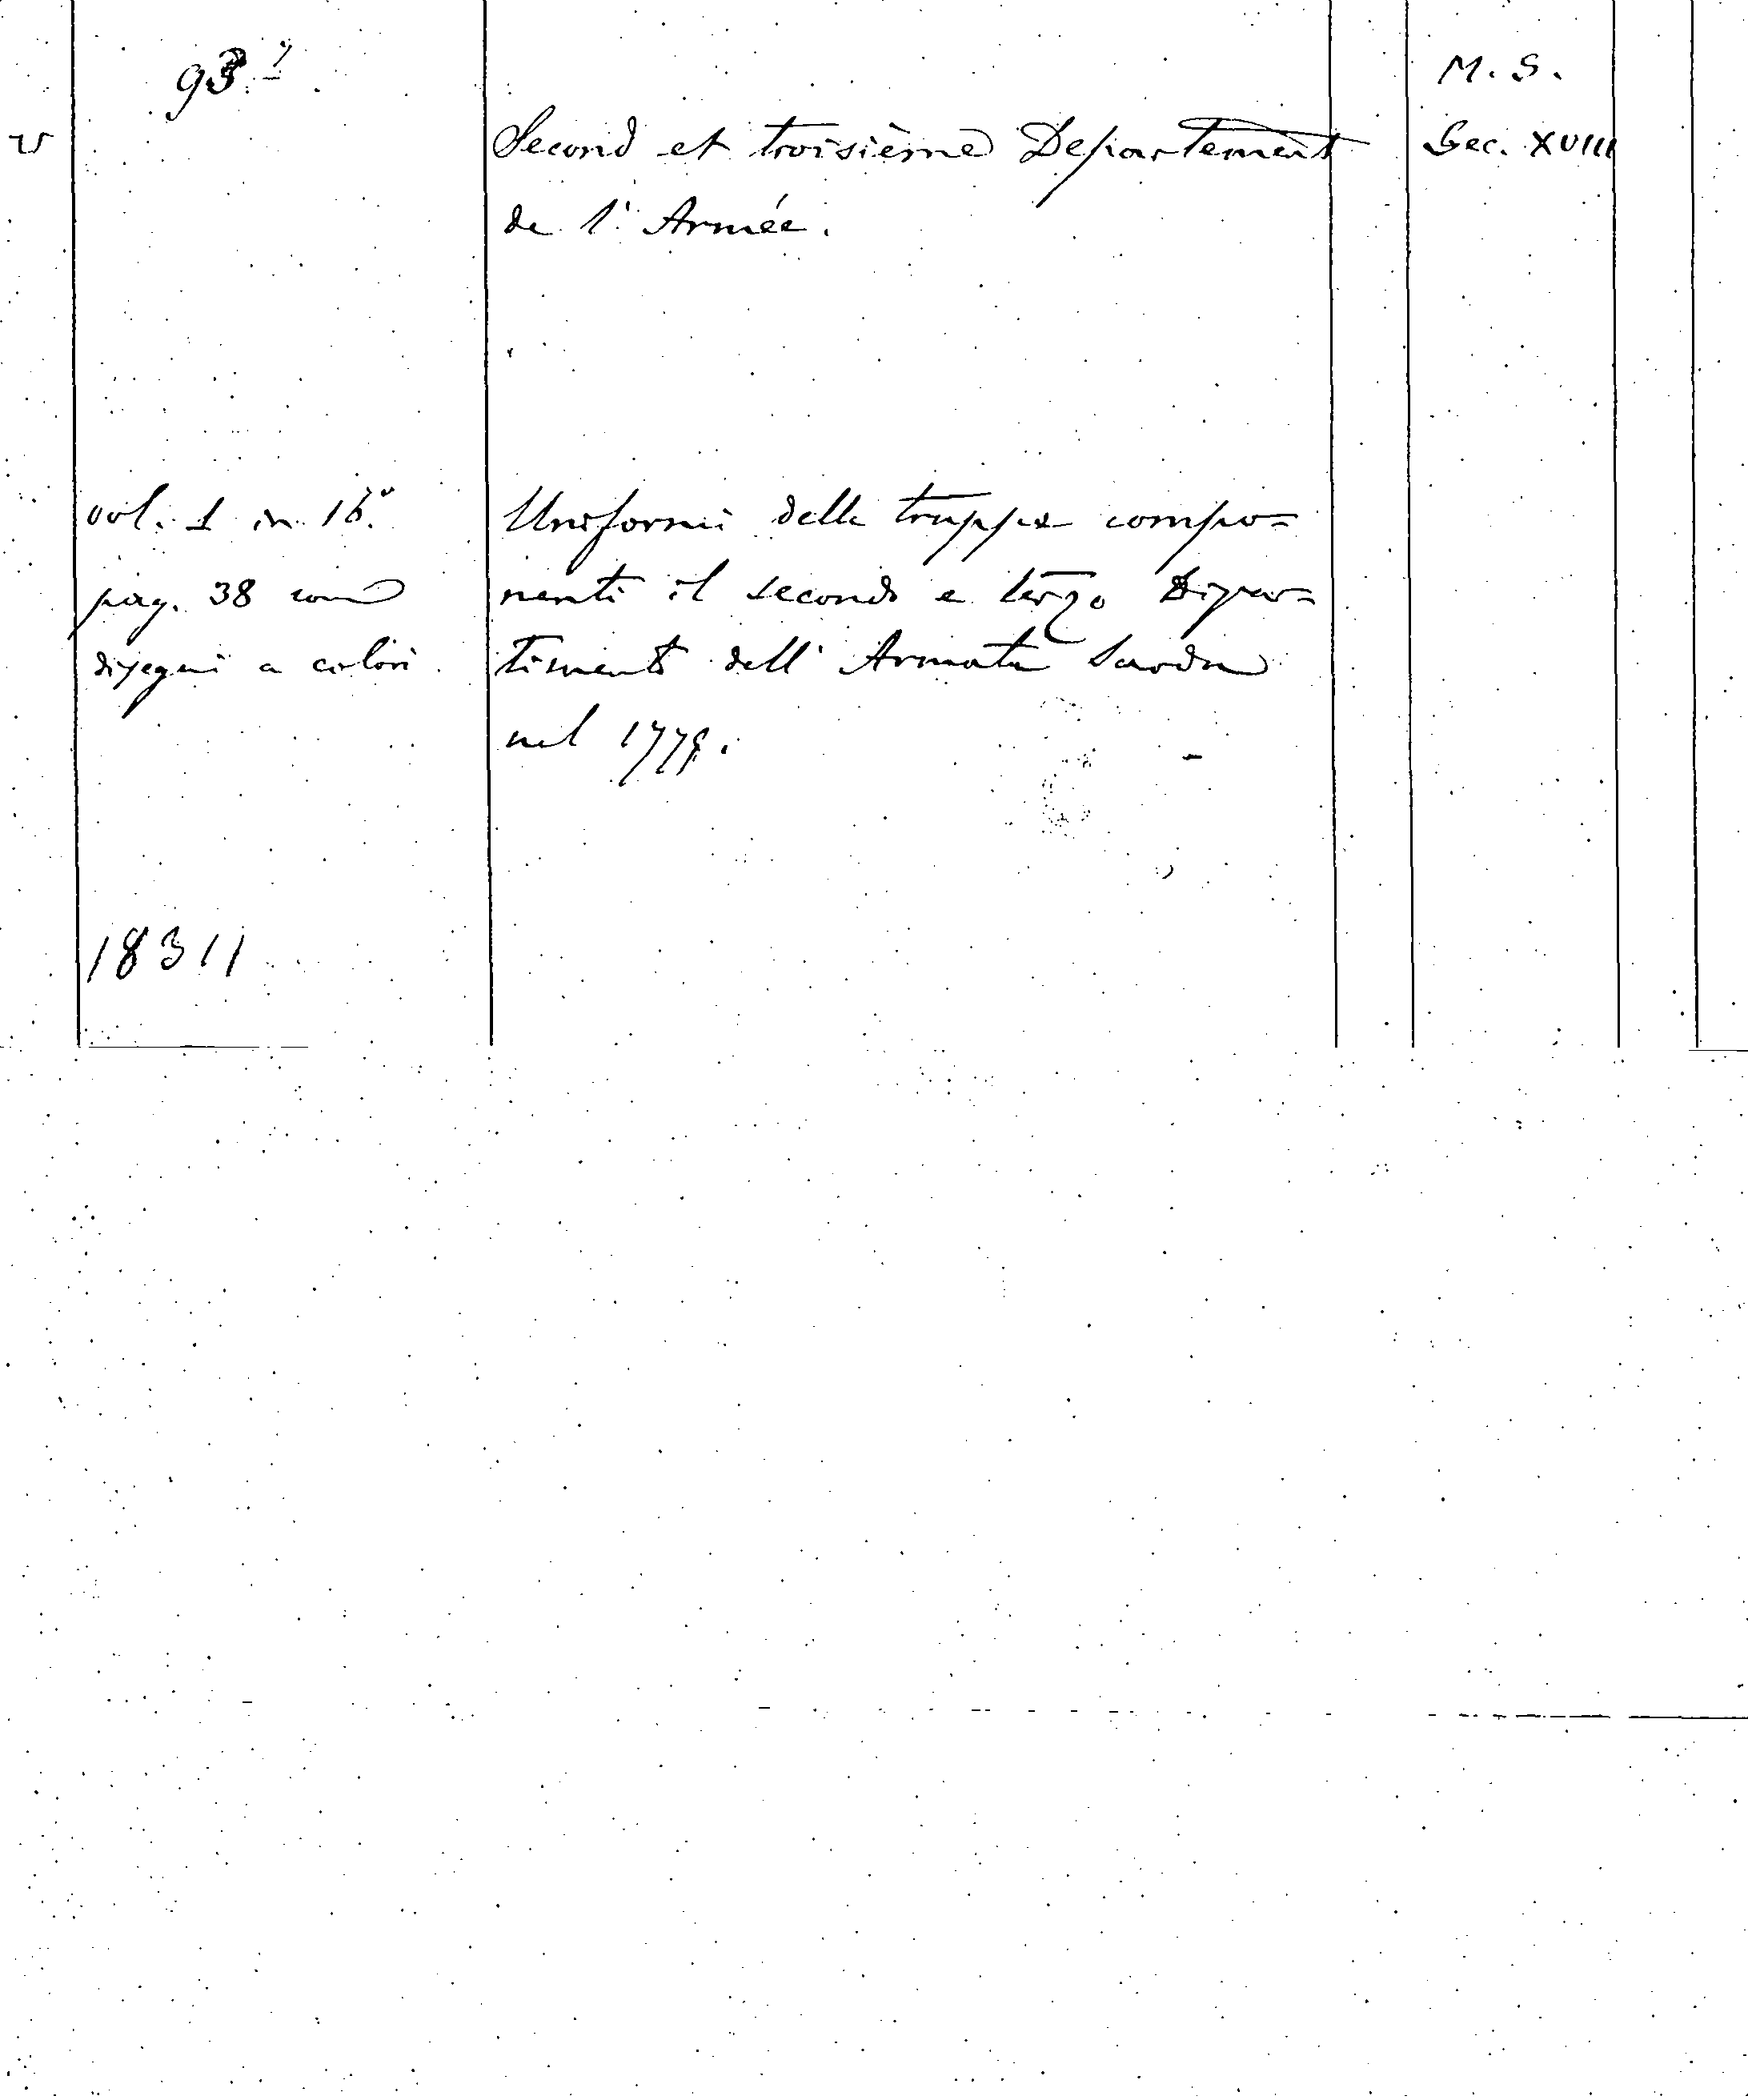 93
M. S.
Second et troisième Departement
Sec. XVIII
de l'Armée.
vol. 1 in 16.º
Uniformi delle truppe compo=
pag. 38 con
nenti il secondo e terzo Dipar=
disegni a colori
timento dell'Armata Sarda
nel
18311